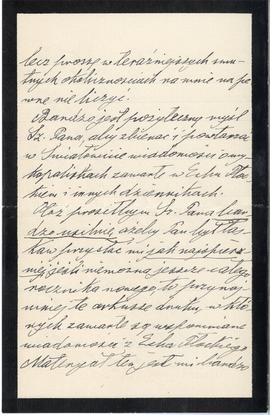 lecz proszę w teraźniejszych smu-
tnych okolicznościach na mnie na pe-
wne nie liczyć.
Bardzo jest pożyteczny myśl
Sz. Pana, aby zbierać i powtarzać
w Światowicie wiadomości o wy-
kopaliskach zawarte w Echu Płoc-
kiem i innych dziennikach.
Otóż prosiłbym Sz. Pana bar-
dzo usilnie, ażeby Pan był łas-
kaw przysłać mi jak najspiesz-
niej, jeśli nie można jeszcze całego
rocznika nowego, to przynaj-
mniej te arkusze druku, w któ-
rych zawarte są wspomniane
wiadomości z Echa Płockiego
Materyał ten jest mi bardzo